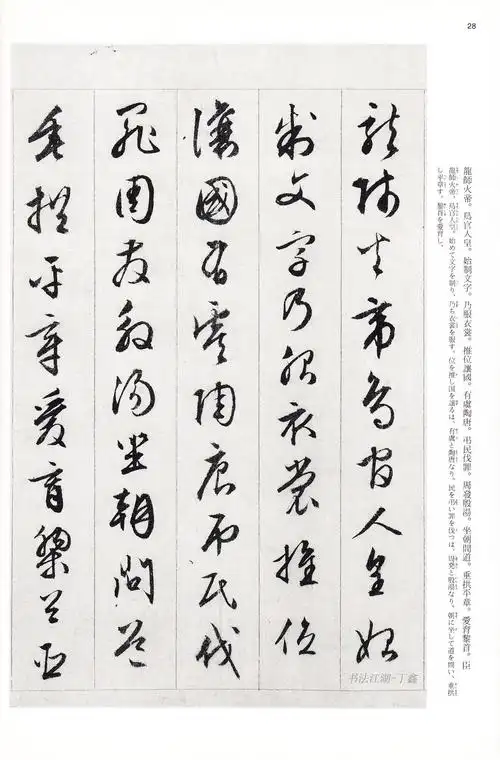 28
龍師火帝。鳥官人皇。始制文字。乃服衣裳。推位讓國。有虞陶唐。弔民伐罪。周發殷湯。坐朝問道。垂拱平章。愛育黎首。臣
龍師火帝、鳥官人皇。始めて文字を制り、乃ち衣裳を服す。位を推し国を譲るは、有虞と陶唐なり。民を弔い罪を伐つは、周発と殷湯なり。朝に坐して道を問い、垂拱
し平章す。黎首を愛育し、
龍師火帝鳥官人皇始
制文字乃服衣裳推位
讓國有虞陶唐弔民伐
罪周發殷湯坐朝問道
垂拱平章愛育黎首臣
书法江湖-丁鑫